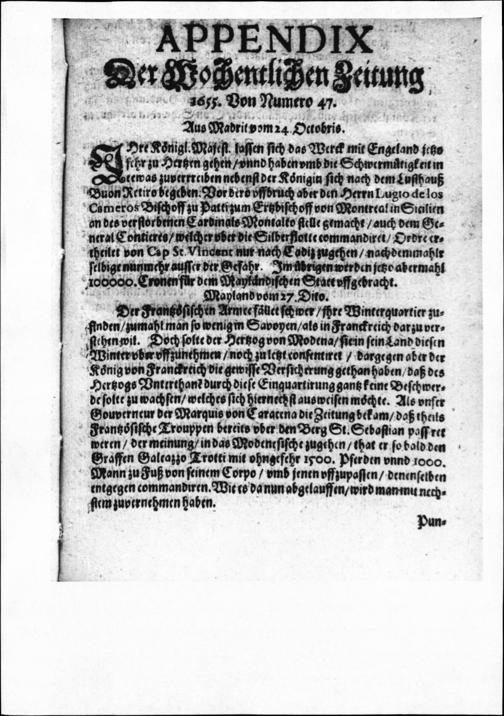 APPENDIX
Der Wochentlichen Zeitung
1655. Von Numero 47.
Aus Madrit vom 24. Octobris.
IHre Königl. Majest. lassen sich das Werck mit Engeland jetzo
sehr zu Hertzen gehen / vnnd haben vmb die Schwermütigkeit in
etewas zuvertreiben nebenst der Königin sich nach dem Lusthauß
Buon Retiro begeben. Vor dero vffbruch aber den Herrn Lugio de los
Cameros Bischoff zu Patti zum Ertzbischoff von Montreal in Sicilien
an des verstorbenen Cardinals Montalto stelle gemacht / auch dem Ge-
neral Contieres / welcher vber die Silberflotte commandiret / Ordre er-
theilet von Cap St. Vincent nur nach Cadiz zugehen / nachdem mahlr
selbige nunmehr ausser der Gefahr. Im übrigen werden jetzo abermahl
100000. Cronen für dem Mayländischen Staet vffgebracht.
Mayland vom 27. Dito.
Der Frantzösischen Armee fället schwer / ihre Winterquartier zu-
finden / zumahl man so wenig in Savoyen / als in Franckreich darzu ver-
stehen wil. Doch solte der Hertzog von Modena / sie in sein Land diesen
Winter vber vffzunehmen / noch zu letzt consentiret / dargegen aber der
König von Franckreich die gewisse Versicherung gethan haben / daß des
Hertzogs Vnterthanen durch diese Einquartirung gantz keine Beschwer-
de solte zu wachsen / welches sich hiernechst ausweisen möchte. Als vnser
Gouverneur der Marquis von Caracena die Zeitung bekam / daß theils
Frantzösische Trouppen bereits vber den Berg St. Sebastian passiret
weren / der meinung / in das Modenesische zugehen / that er so bald den
Graffen Galeazzo Trotti mit ohngefehr 1500. Pferden vnnd 1000.
Mann zu Fuß von seinem Corpo / vmb jenen vffzupassen / denenselben
entgegen commandiren. Wie es da nun abgelauffen / wird man mit nech-
stem zuvernehmen haben.
Pun-